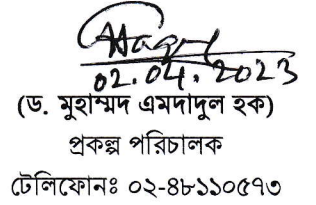 02.04.2023
(ড. মুহাম্মদ এমদাদুল হক)
প্রকল্প পরিচালক
টেলিফোনঃ ০২-৪৮১১০৫৭৩